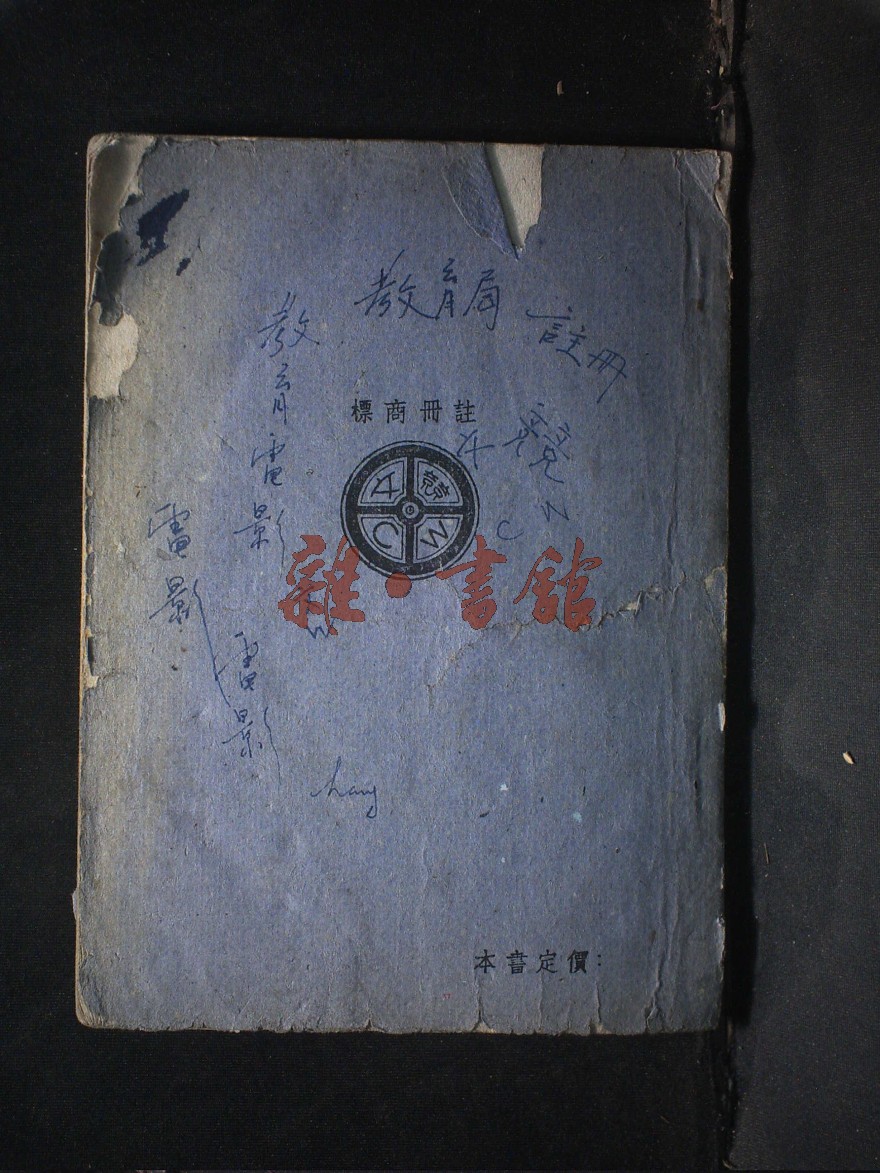 教育局 註冊
教育電影
電影
電影
註冊商標
競
C W
C W
雜·書館
本書定價：